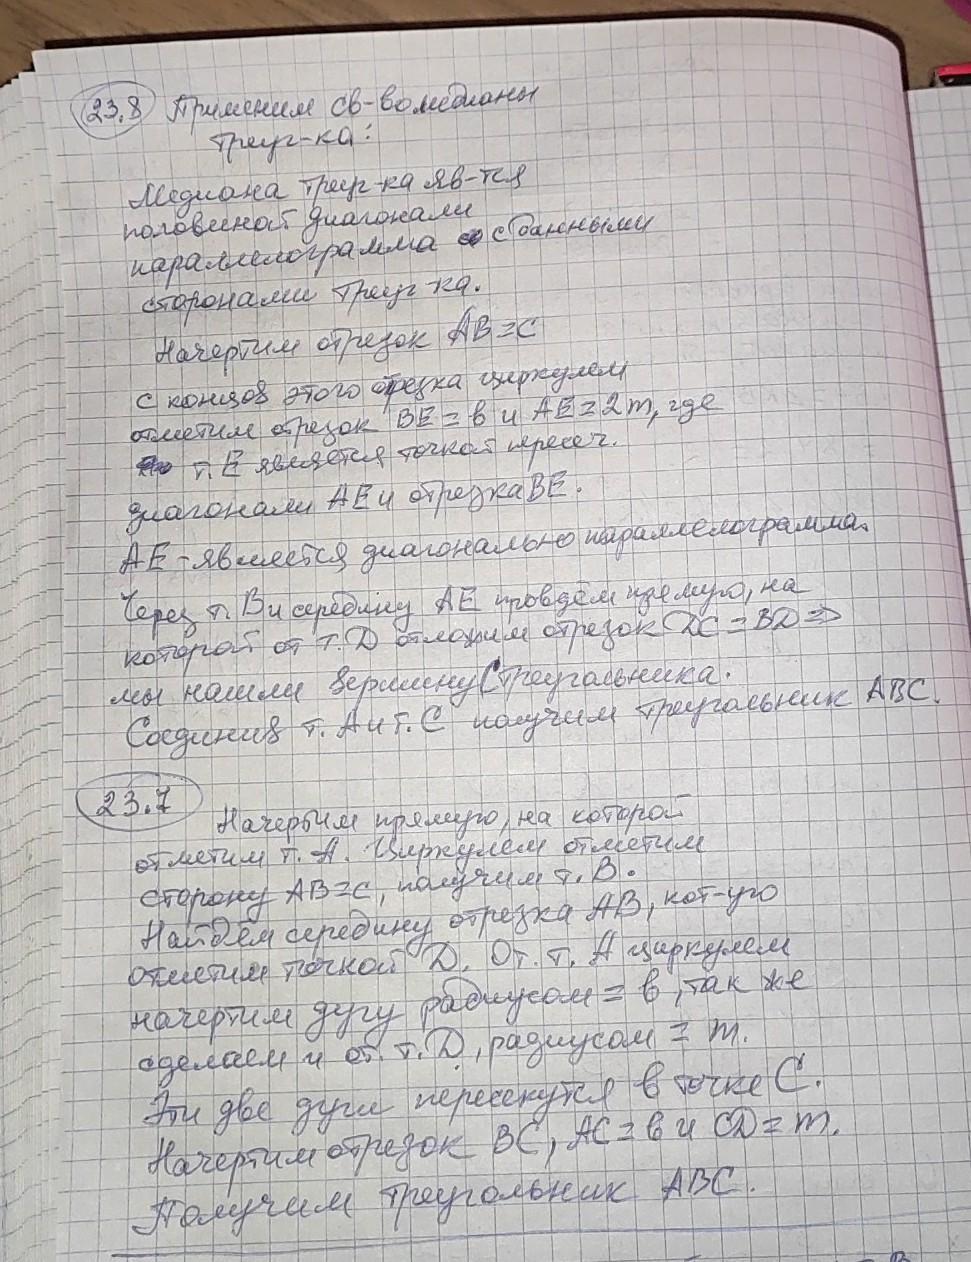 23.8 Применим св-во медианы
треуг-ка:
Медиана треуг-ка яв-тся
половиной диагонали
параллелограмма с данными
сторонами треуг-ка.
Начертим отрезок AB=C
с концов этого отрезка циркулем
отметим отрезок BE=в и AE=2m, где
т. E является точкой пересеч.
диагонали AE и отрезка BE.
AE - является диагональю параллелограмма.
Через т. B и середину AE проведём прямую, на
которой от т. D отложим отрезок DC=BD ⇒
мы нашли вершину C треугольника.
Соединив т. A и т. C получим треугольник ABC.
23.7 Начертим прямую, на которой
отметим т. A. Циркулем отметим
сторону AB=c, получим т. B.
Найдём середину отрезка AB, кот-ую
отметим точкой D. От т. A циркулем
начертим дугу радиусом = в, так же
сделаем и от. т. D, радиусом = m.
Эти две дуги пересекутся в точке C.
Начертим отрезок BC, AC=в и CD=m.
Получим треугольник ABC.